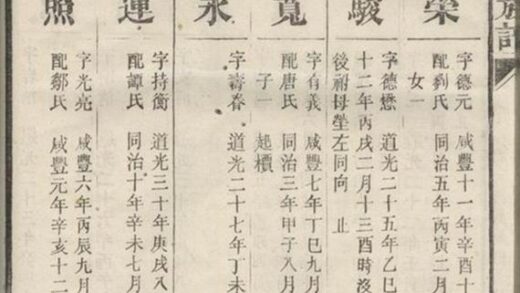 族譜
榮
字德元 咸豐十一年辛酉十
配劉氏 同治五年丙寅二月
女一
駿
字德懋 道光二十五年乙巳
十二年丙戌二月十三酉時沒
後祖母塋左同向 止
寬
字有義 咸豐七年丁巳九月
配唐氏 同治三年甲子八月
子一 起檟
永
字壽春 道光二十七年丁未
運
字持衡 道光三十年庚戌八
配譚氏 同治十年辛未七月
照
字光亮 咸豐六年丙辰九月
配鄒氏 咸豐元年辛亥十二